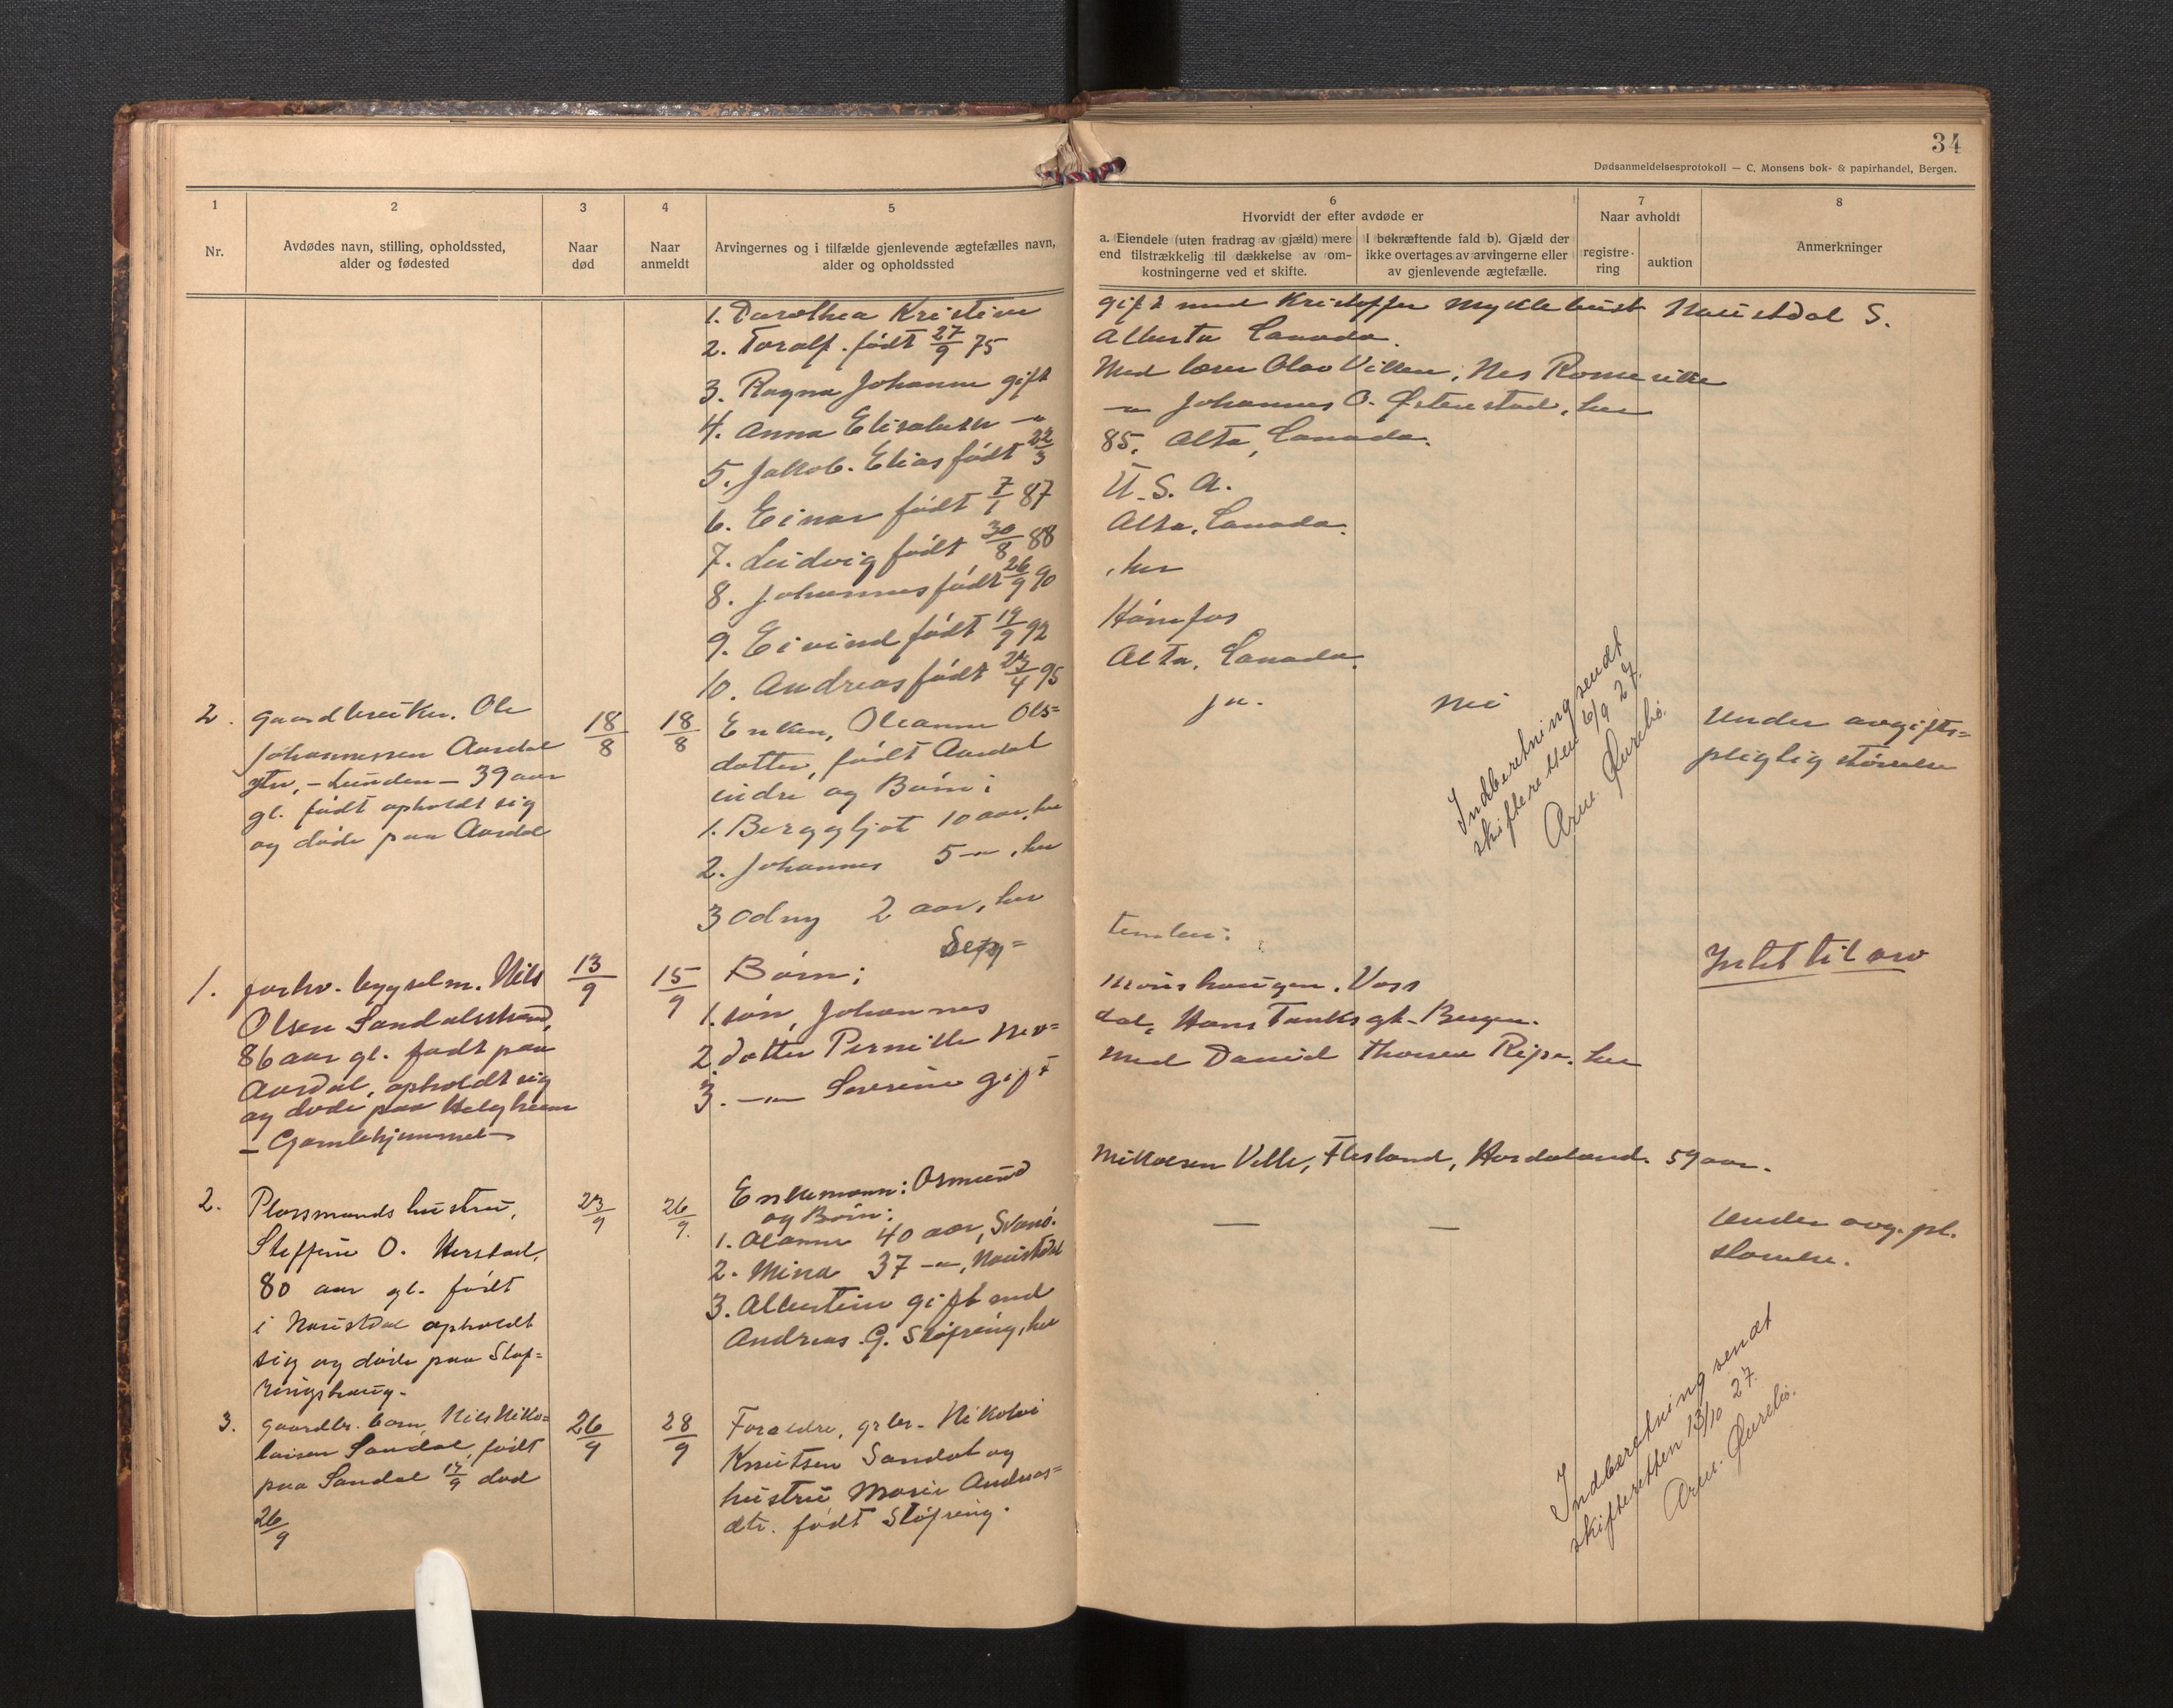 34
Dødsanmeldelsesprotokoll — C. Monsens bok- & papirhandel, Bergen.
1
Nr.
2
Avdødes navn, stilling, opholdssted,
alder og fødested
3
Naar
død
4
Naar
anmeldt
5
Arvingernes og i tilfælde gjenlevende ægtefælles navn,
alder og opholdssted
6
Hvorvidt der efter avdøde er
a. Eiendele (uten fradrag av gjæld) mere
end tilstrækkelig til dækkelse av om-
kostningerne ved et skifte.
I bekræftende fald b). Gjæld der
ikke overtages av arvingerne eller
av gjenlevende ægtefælle.
7
Naar avholdt
registre-
ring
auktion
8
Anmerkninger
1. Dorothea Kristine gift med Kristoffer Myklebust Naustdal S.
2. Toralf. født 27/9 75 Alberta Canada.
3. Ragna Johanne gift Med lærer Olav Villen, Nes Romerike
4. Anna Elisabeth -"- -"- Johannes O. Østenstad, her
5. Jakob. Elias født 22/3 85, Alta, Canada.
6. Einar født 7/1 87 U.S.A.
7. Ludvig født 30/8 88 Alta, Canada.
8. Johannes født 26/9 90 , her
9. Eivind født 19/9 92 Hønefos
10. Andreas født 24/4 95 Alta, Canada.
2. gaardbruker. Ole
Johannessen Aardal
ytre, - Lunden - 39 aar
gl. født opholdt sig
og døde paa Aardal
18/8
18/8
Enken, Oleanne Ols=
datter, født Aardal
indre og Børn:
1. Berggljot 10 aar, her
2. Johannes 5 -"-, her
3 Odny 2 aar, her
ja.
nei
Indberetning sendt
skifteretten 6/9 27.
Arne
Under avgifts=
pligtig størrelse
Sept=
tember:
1. forhv. bygselm. Nils
Olsen Sandalsstrand,
86 aar gl. født paa
Aardal, opholdt sig
og døde paa Helgheim
- Gamlehjemmet -
13/9
15/9
Børn:
1. søn, Johannes
haugen, Voss
2 datter Pernille Nev=
dal, Hans Tanks gt. Bergen.
3. -"- Severine gift
med David Thorsen Ripe, her
Intet til arv
2. Plassmands hustru,
Steffine O. Herstad,
80 aar gl. født
i Naustdal opholdt
sig og døde paa Støf=
ringshaug.
23/9
26/9.
Enkemann: Osmund
Mikkelsen Velle, Flesland, Hordaland. 59 aar.
og Børn:
1. Oleanne 40 aar, Svanø.
2. Mina 37 -"-, Naustdal
3. Albertine gift med
Andreas G. Støfring, her
—
—
Under avg. pl.
størrelse.
3. gaardbr. barn, Nils Niko=
laisen Sandal, født
paa Sandal 17/9 død
26/9
26/9
28/9
Foreldre, grbr. Nikolai
Knutsen Sandal og
hustru Marie Andreas=
dtr. født Støfring.
Indberetning sendt
skifteretten 13/10 27.
Arne